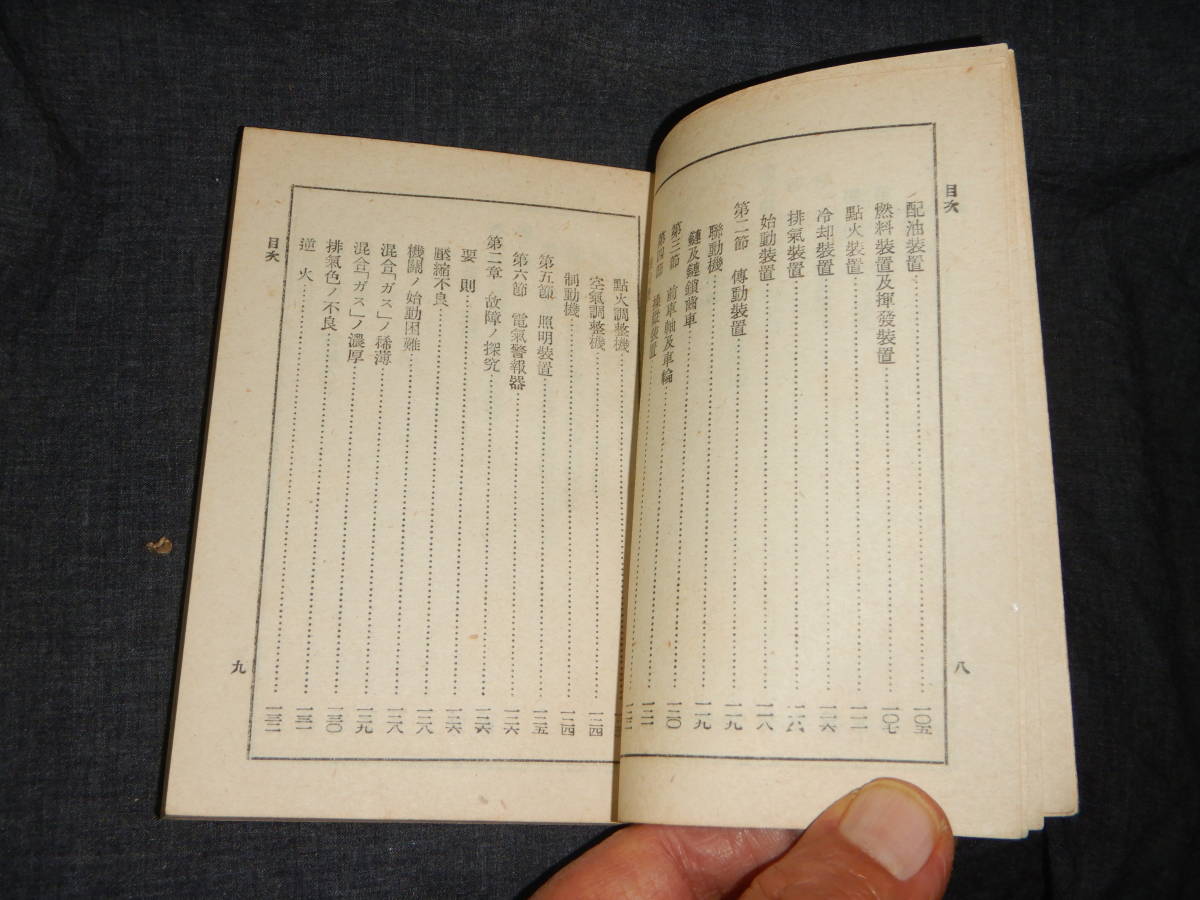 目次
配油装置……一〇五
燃料装置及揮發装置……一〇七
點火装置……一一一
冷却装置……一一六
排氣装置……一一六
始動装置……一一八
第二節 傳動装置……一一九
聯動機……一一九
鏈及鏈鎖齒車……一一九
第三節 前車軸及車輪……一二〇
第四節 操縦装置……一二一
八
點火調整機……
空氣調整機……一二四
制動機……一二四
第五節 照明装置……一二五
第六節 電氣警報器……一二六
第二章 故障ノ探究……一二六
要則……一二六
壓縮不良……一二六
機關ノ始動困難……一二八
混合「ガス」ノ稀薄……一二八
混合「ガス」ノ濃厚……一二九
排氣色ノ不良……一三〇
逆火……一三一
……一三二
目次
九